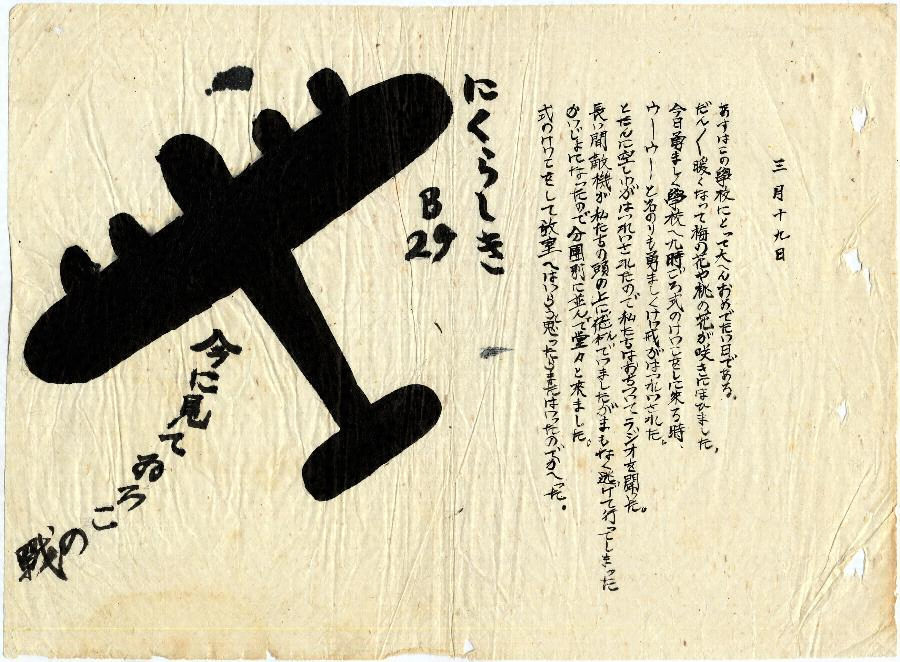 三月十九日
あすはこの學校にとって大へんおめでたい日である。
だん〱暖くなって梅の花や桃の花が咲きにほひました。
今日勇ましく學校へ九時ごろ式のけいこをしに来る時、
ウーウーと名のりも勇ましくけい戒がはつれいされた。
とたんに空しふがはつれいされたので私たちはおちついてラジオを聞いた。
長い間敵機が私たちの頭の上に ましたがまもなく逃げて行ってしまった
かいじょになったので分團別に並んで堂々と来ました。
式のけいこをして教室へはいらう思ったらまたはいったのでかへった。
にくらしき
B
29
今に見てゐろこの戰